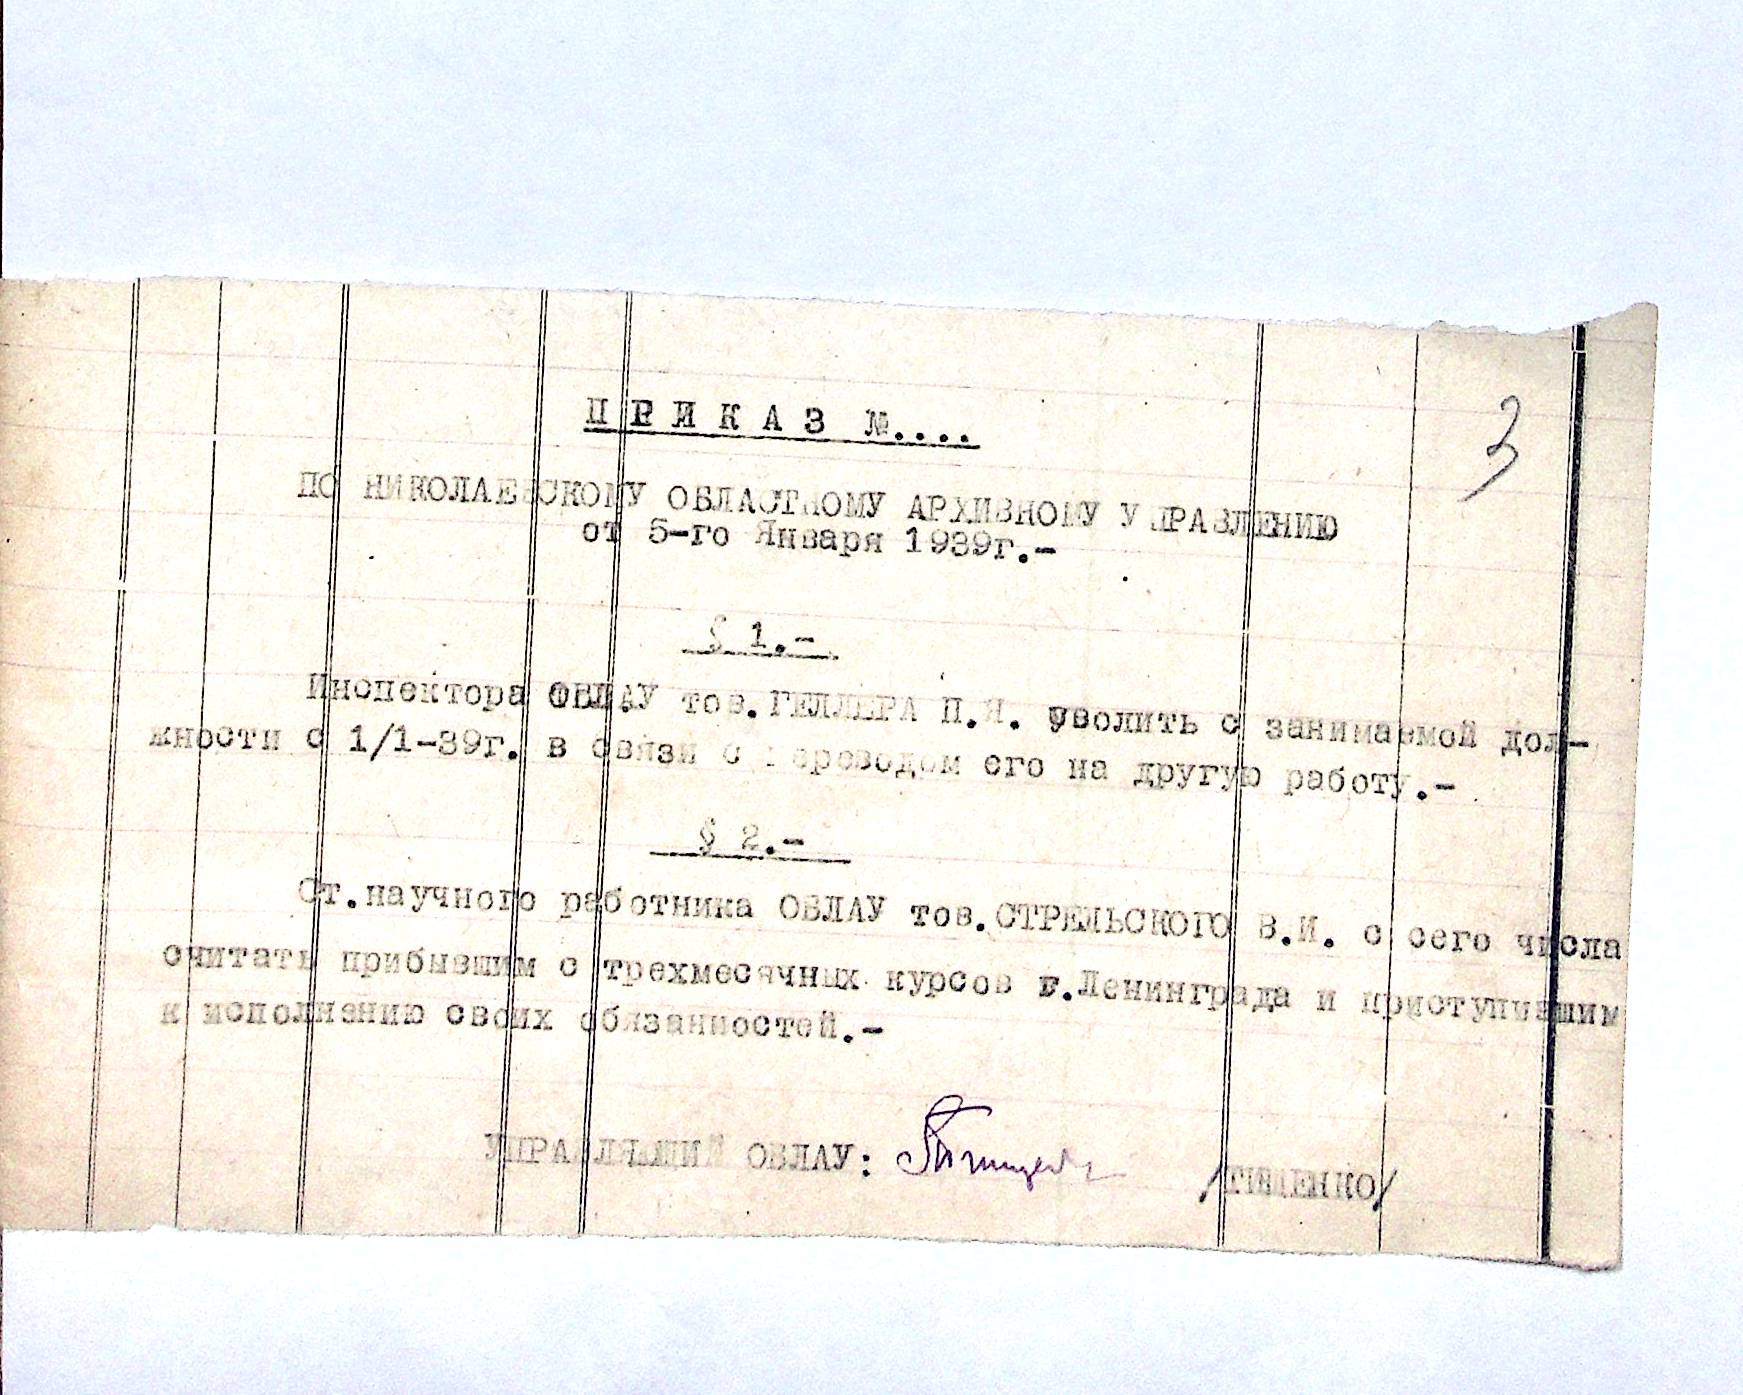 3
ПРИКАЗ №....
ПО НИКОЛАЕВСКОМУ ОБЛАСТНОМУ АРХИВНОМУ УПРАВЛЕНИЮ
от 5-го Января 1939г.-
§ 1.-
Инспектора ОБЛАУ тов.ГЕЛЛЕРА П.Я. уволить с занимаемой дол-
жности с 1/1-39г. в связи с переводом его на другую работу.-
§ 2.-
Ст.научного работника ОБЛАУ тов.СТРЕЛЬСКОГО В.И. с сего числа
считать прибывшим с трехмесячных курсов г.Ленинграда и приступившим
к исполнению своих обязанностей.-
УПРАВЛЯЮЩИЙ ОБЛАУ: /ТИЩЕНКО/